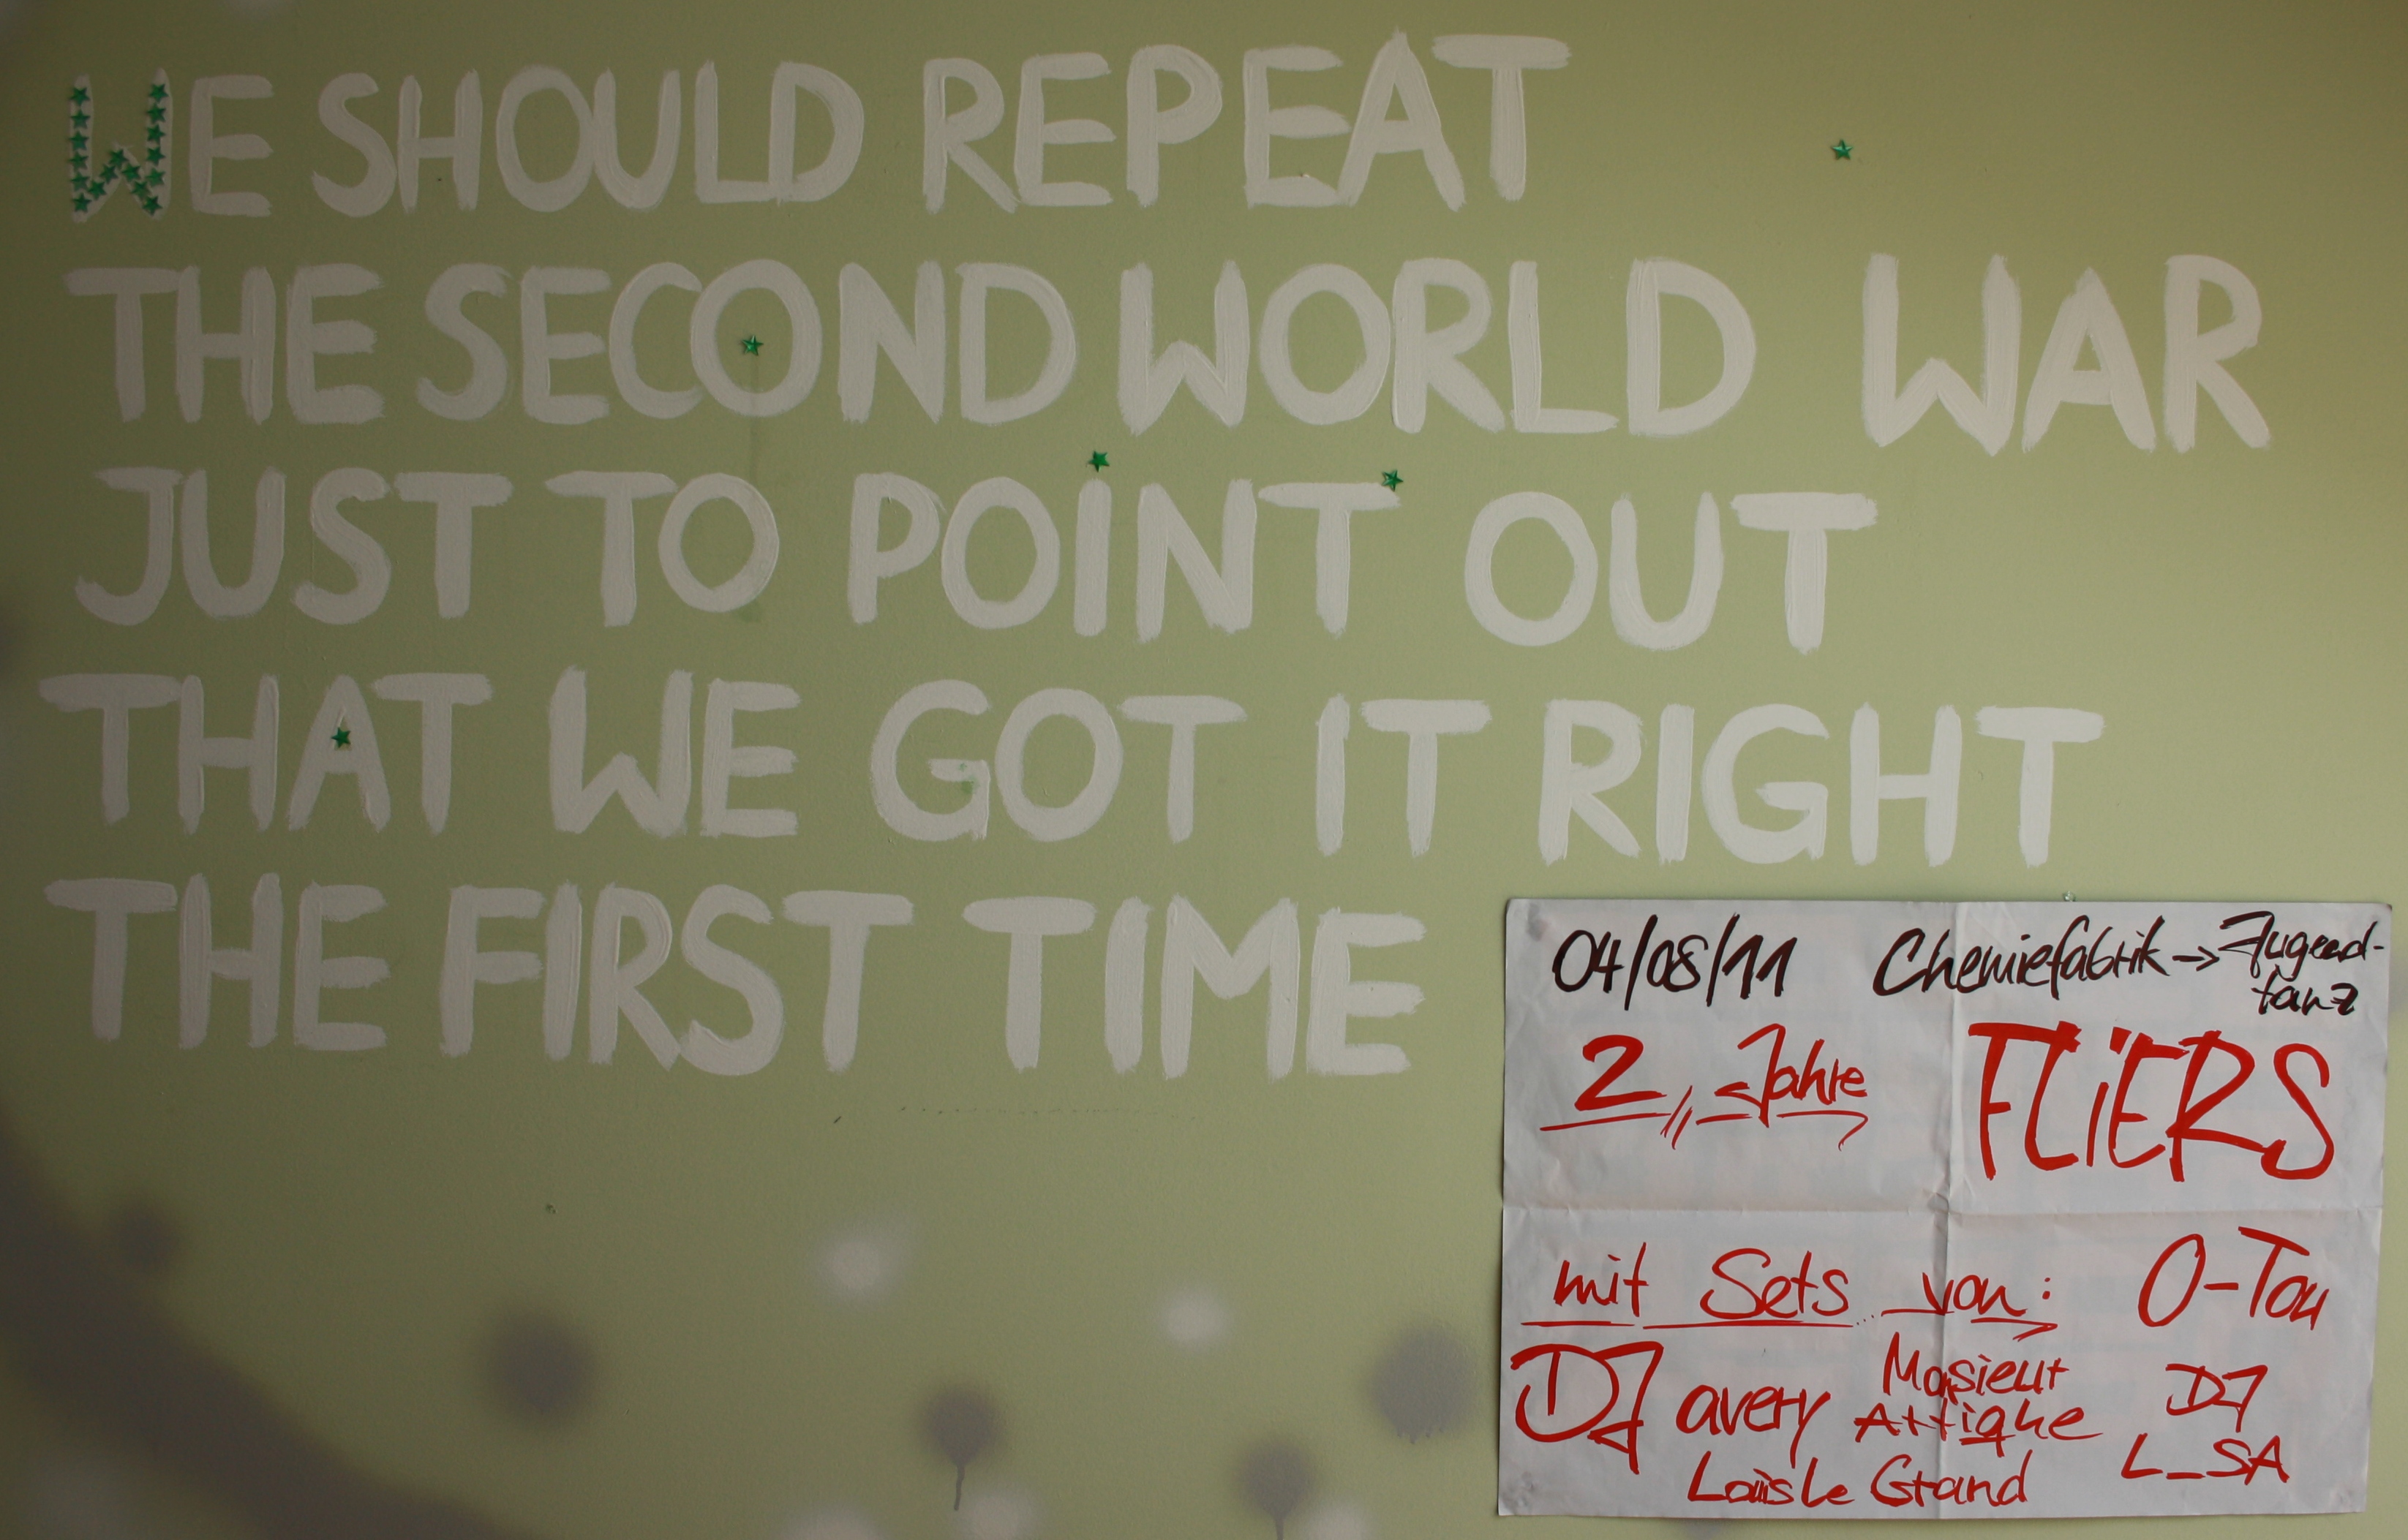 WE SHOULD REPEAT
THE SECOND WORLD WAR
JUST TO POINT OUT
THAT WE GOT IT RIGHT
THE FIRST TIME
04/08/11 Chemiefabrik → Jugend-
tanz
2 Jahre FLiERS
mit Sets von: O-Ton
DJ avery Mosieur Attique DJ L_SA
Loïs Le Grand